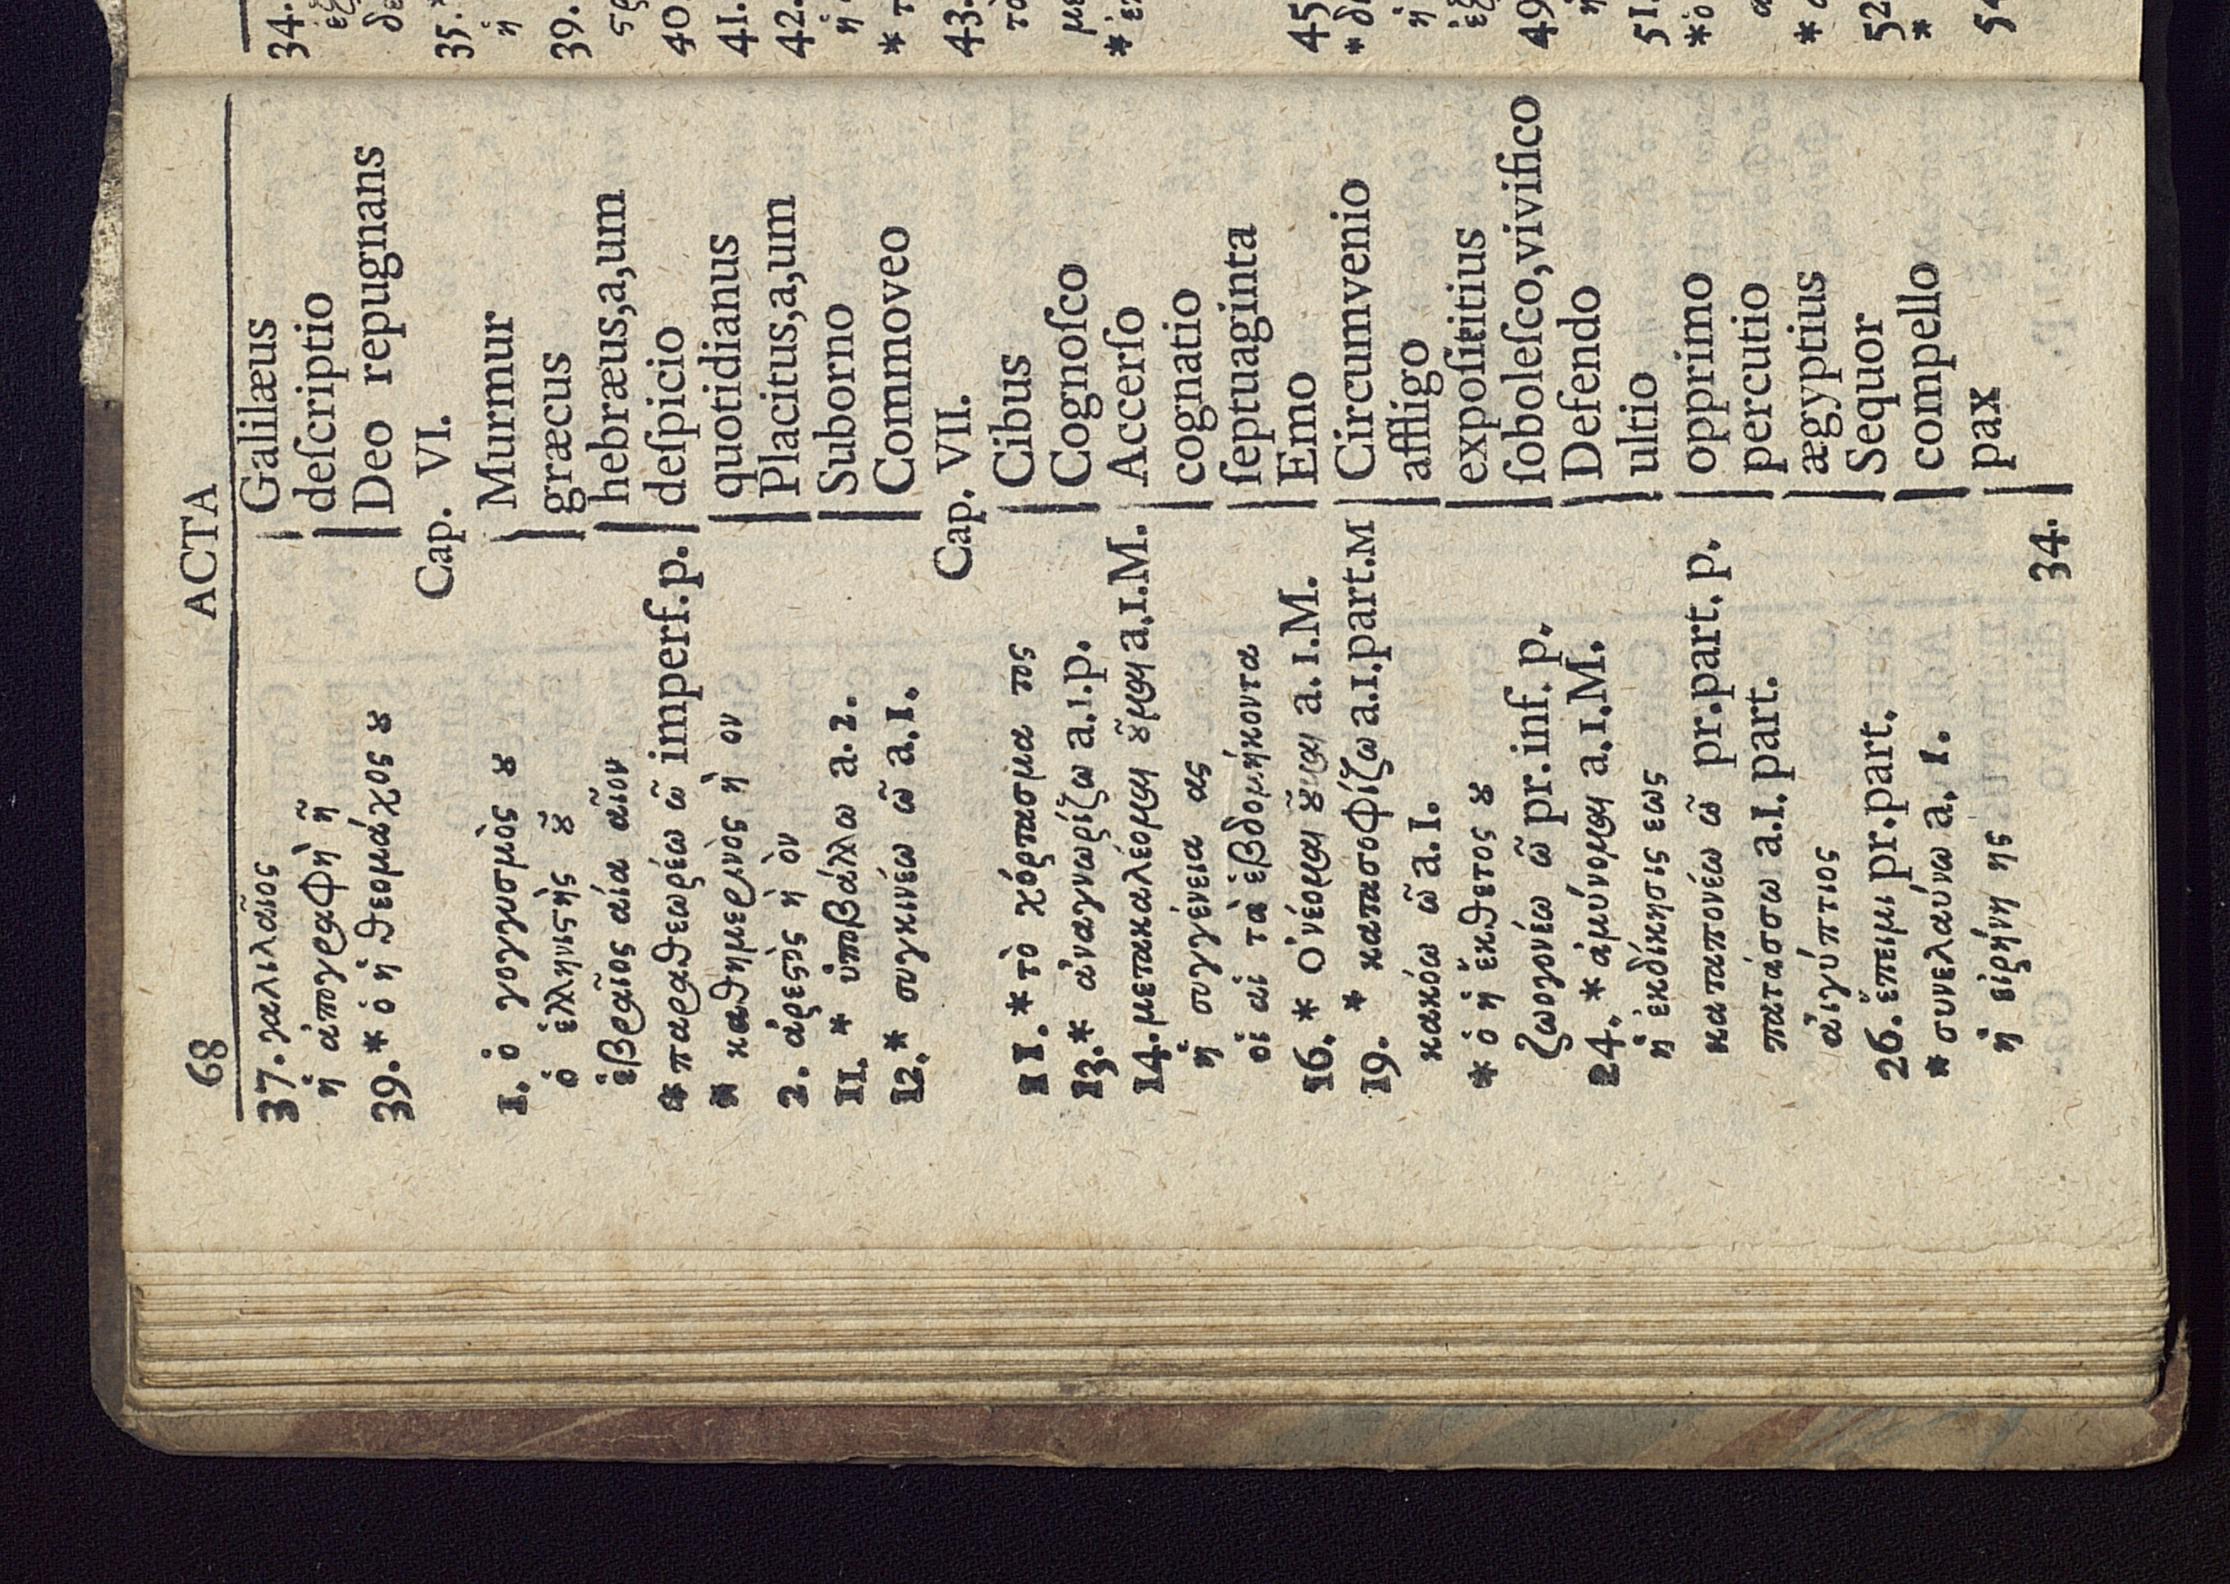 68 ACTA
37. γαλιλαῖος | Galilæus
ἡ ἀπογραφὴ ῆ | deſcriptio
39. * ὁ ἡ θεομάχος ȣ | Deo repugnans
Cap. VI.
1. ὁ γογγυσμὸς ȣ | Murmur
ὁ ἑλληνιϛὴς ȣ͂ | græcus
ἑβραῖος αία αῖον | hebræus,a,um
* παραθεωρέω ῶ imperf. p. | deſpicio
* καθημερινὸς ὴ ὸν | quotidianus
2. ἀρεϛὸς ὴ ὸν | Placitus,a,um
11. * ὑποβάλλω a. 2. | Suborno
12. * συγκινέω ῶ a. 1. | Commoveo
Cap. VII.
11. * τὸ χόρτασμα τος | Cibus
13. * ἀναγνωρίζω a. 1. p. | Cognoſco
14. μετακαλέομαι ȣ͂μαι a. 1. M. | Accerſo
ἡ συγγένεια ας | cognatio
οἱ αἱ τὰ ἑβδομήκοντα | ſeptuaginta
16. * Ὀνέομαι ȣ͂μαι a. 1. M. | Emo
19. * κατασοφίζω a. 1. part. M | Circumvenio
κακόω ῶ a. 1. | affligo
* ὁ ἡ ἔκθετος ȣ | expoſititius
ζωογονέω ῶ pr. inf. p. | ſoboleſco, vivifico
24. * ἀμύνομαι a. 1. M. | Defendo
ἡ ἐκδίκησις εως | ultio
καταπονέω ῶ pr. part. p. | opprimo
πατάσσω a. 1. part. | percutio
αἰγύπτιος | ægyptius
26. ἔπειμι pr. part. | Sequor
* συνελαύνω a. 1. | compello
ἡ εἰρήνη ης | pax
34.
34.
35. *
ἡ
39.
40
41.
42.
43.
45
49
51.
52